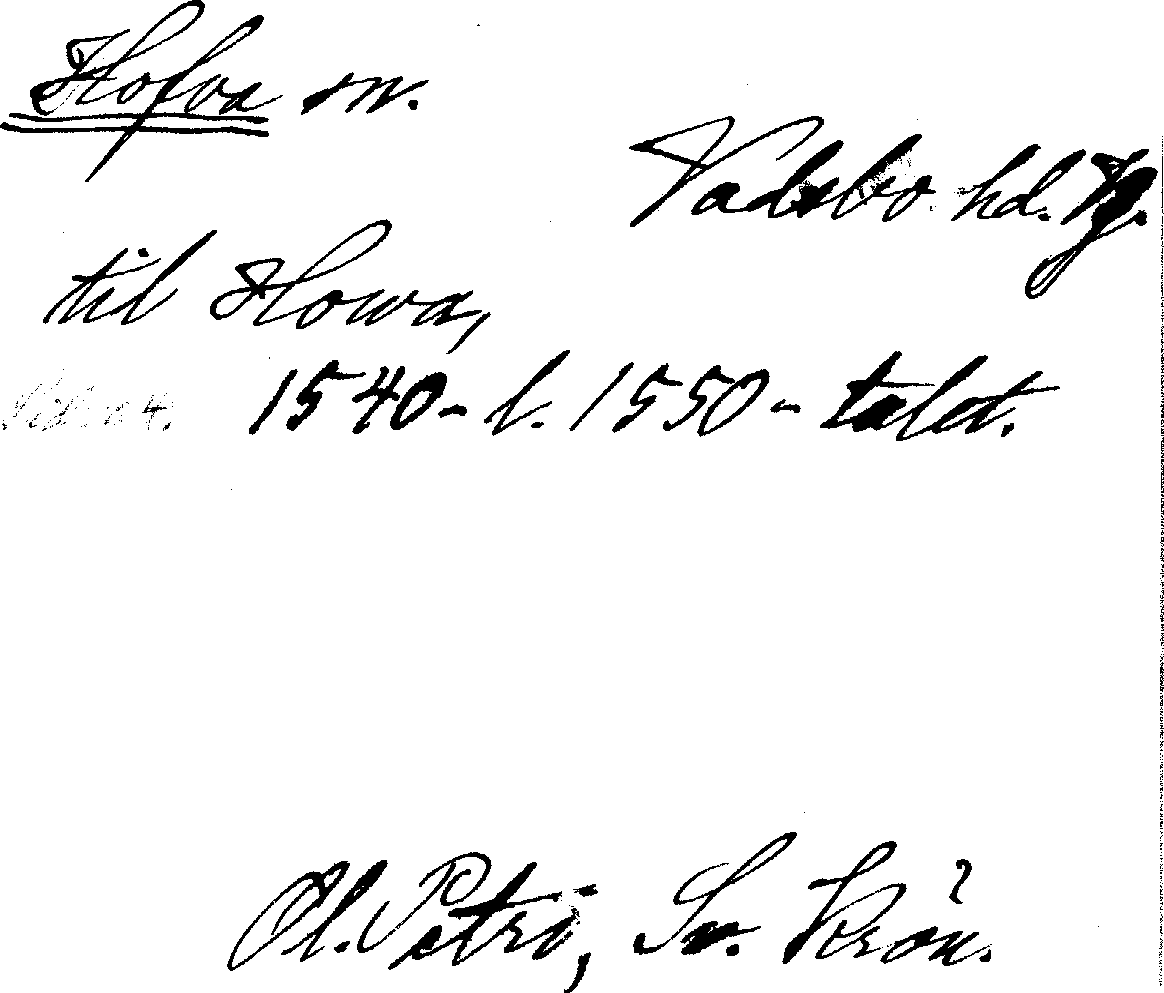 Hofva sn.
Vadsbo hd. Vg.
til Howa,
1540- l. 1550-talet.
Ol. Petri, Sv. Krön. 2